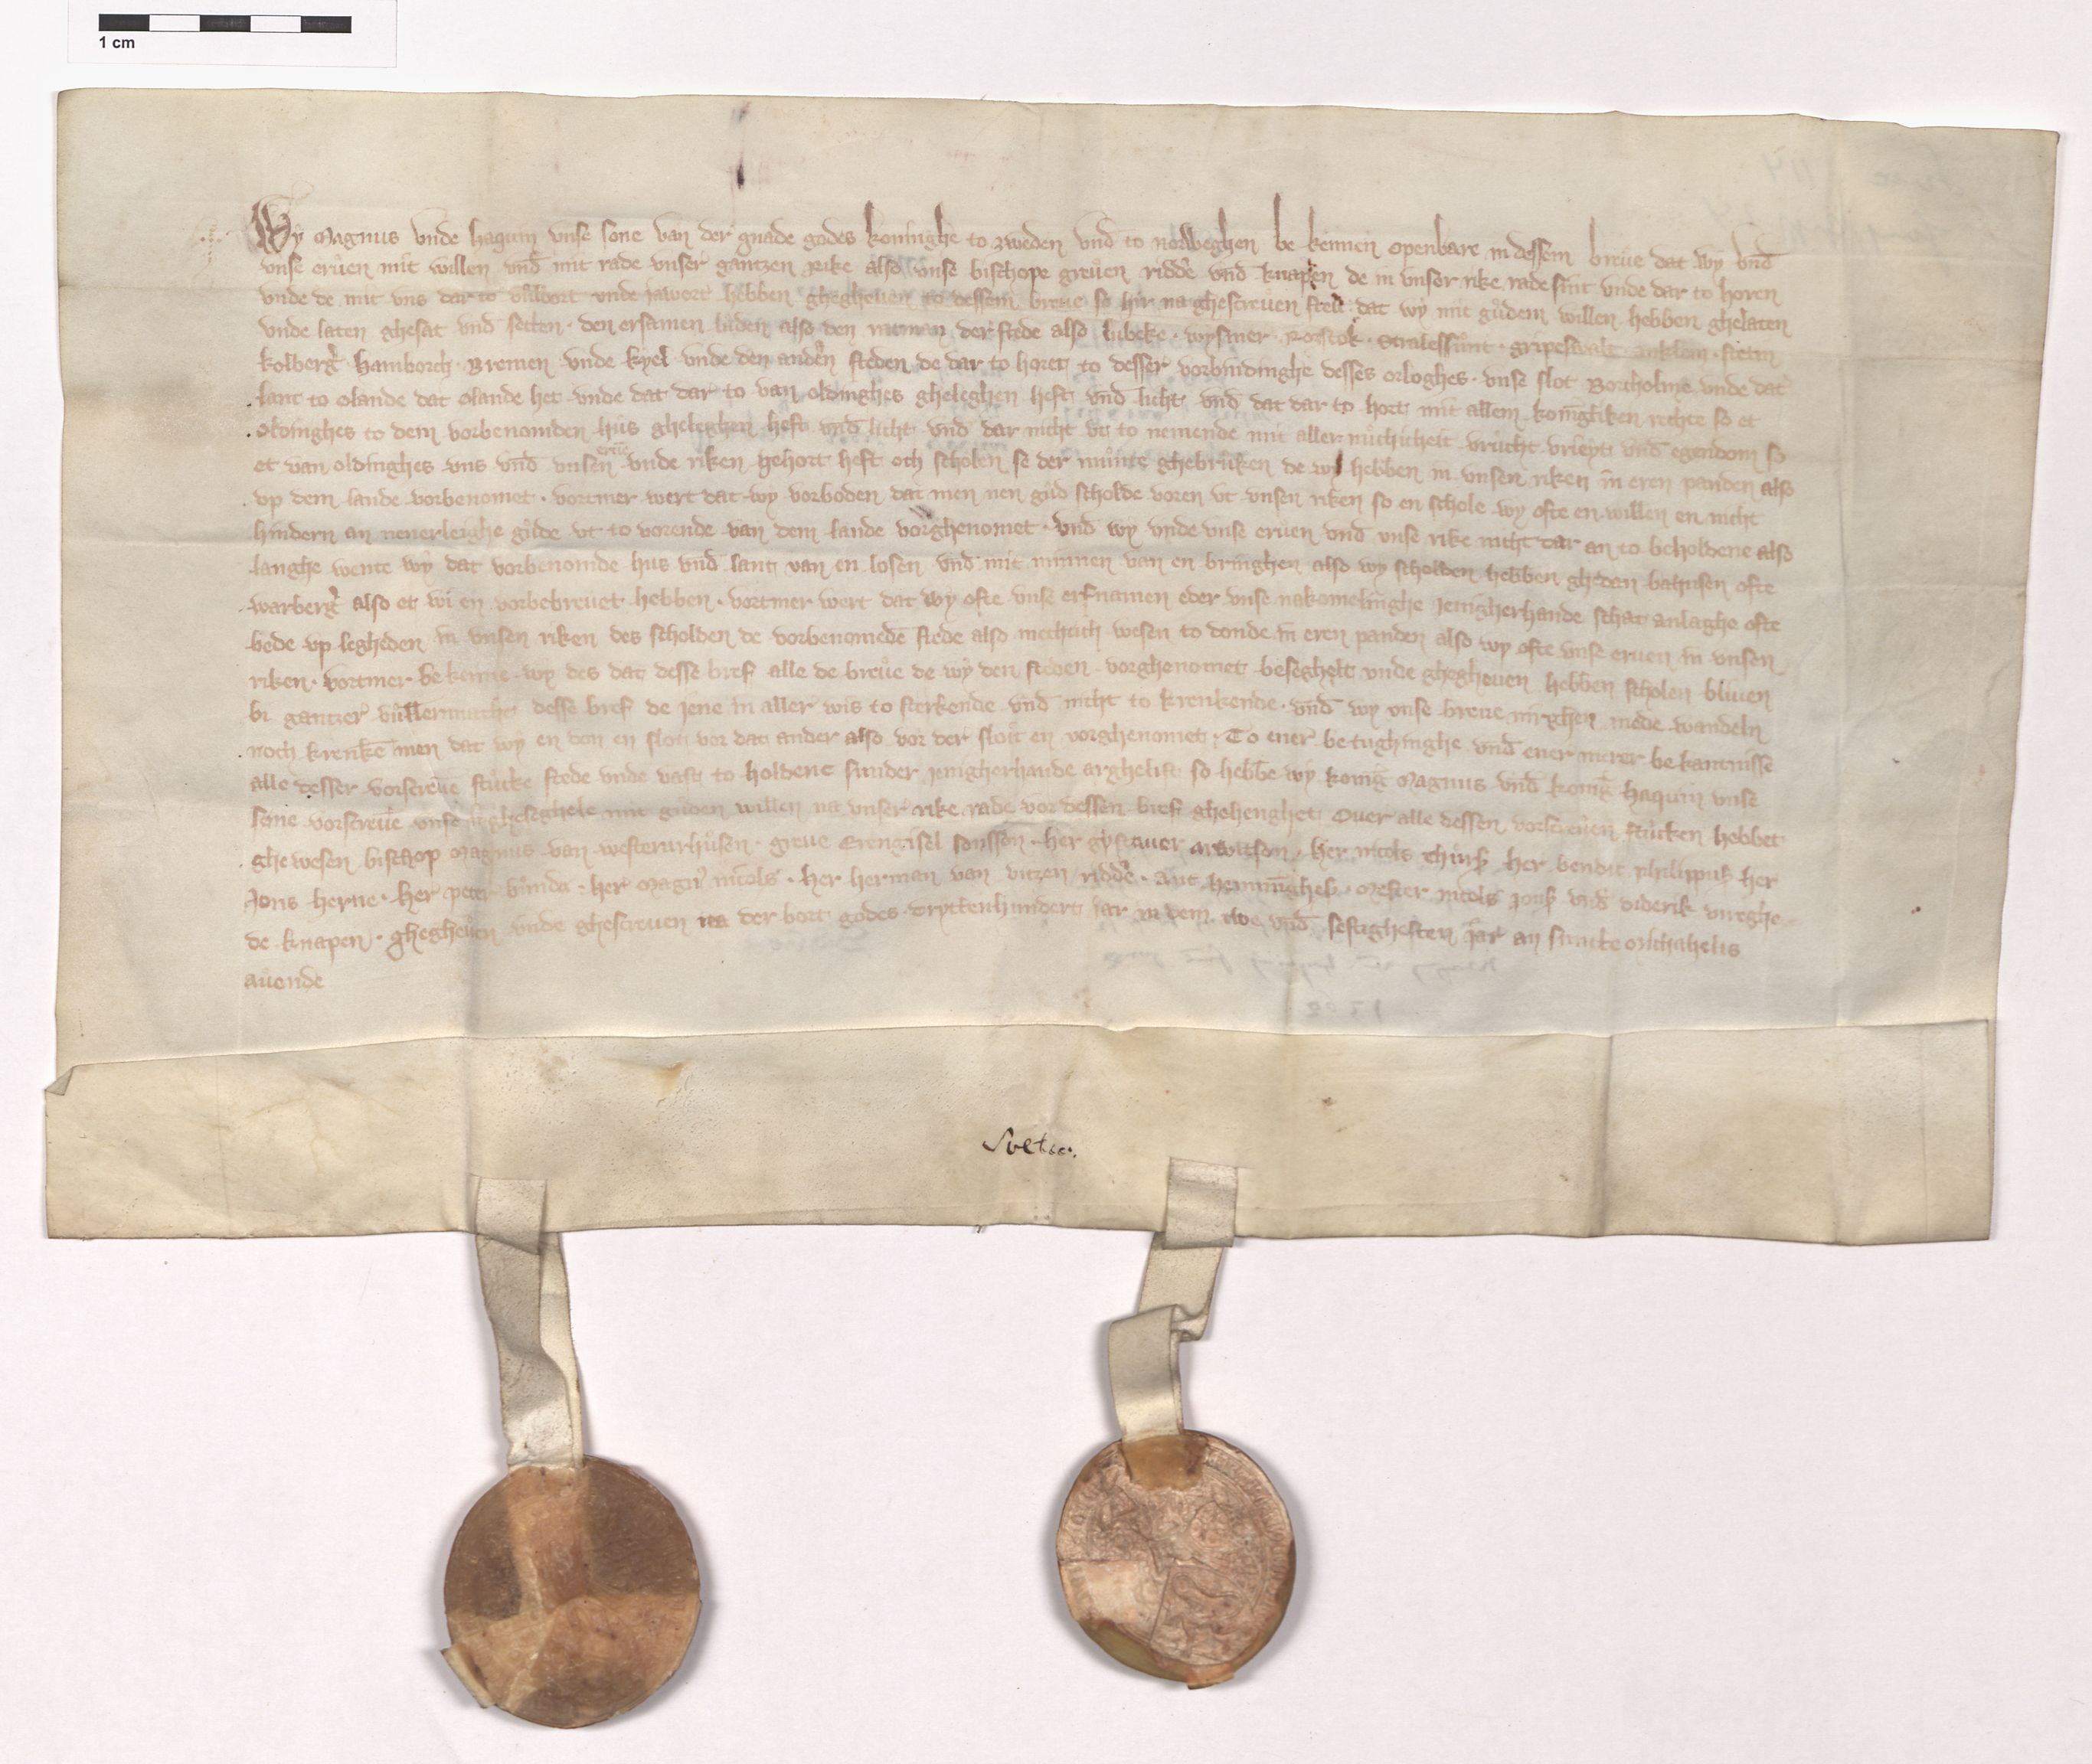 1 cm
Wy Magnus vnde haquin vnse sone van der gnade godes koninghe to zweden vnd to norweghen be kennen openbare in dessem breue dat wy vnd
vnse eruen mit willen vnd mit rade vnser gantzen Rike also vnse bischope greuen ridder vnd knapen de in vnser rike rade sint vnde dar to horen
vnde de mit vns dar to vulbort vnde jawort hebben ghegheuen to dessem breue so hir na ghescreuen steit dat wy mit gudem willen hebben ghelaten
vnde laten ghesat vnd setten den ersamen luden also den ratman der stede also lubeke wysmer Rostok Stralessunt gripeswalt anklem stetin
kolberg hamborch Bremen vnde kyel vnde den andern steden de dar to horen to desser vorbindinghe desses orloghes vnse slot Borcholme vnde dat
lant to olande dat olande het vnde dat dar to van oldinghes gheleghen heft vnd licht vnd dat dar to hort mit allem koningliken rechte so et
oldinghes to dem vorbenomden hus gheleghen heft vnd licht vnd dar nicht vt to nemende mit aller nuchticheit vrucht vrieyt vnd egendom so
et van oldinghes vns vnd vnsen erue vnde riken gehort heft och scholen se der munte ghebruken de wy hebben in vnsen riken in eren panden also
vp dem lande vorbenomet vortmer wert dat wy vorboden dat men nen gud scholde voren vt vnsen riken so en schole wy ofte en willen en nicht
hindern an nenerleighe gude vt to vorende van dem lande vorghenomet vnd wy vnde vnse eruen vnd vnse rike nicht dar an to beholdene also
langhe wente wy dat vorbenomde hus vnd lant van en losen vnd mit minnen van en bringhen also wy scholden hebben ghedan bahusen ofte
warberg also et wi en vorbebreuet hebben vortmer wert dat wy ofte vnse erfnamen eder vnse nakomelinghe jenigherhande schat anlaghe ofte
bede vp legheden in vnsen riken des scholden de vorbenomeden stede also mechtich wesen to donde in eren panden also wy ofte vnse eruen in vnsen
riken vortmer be kenne wy des dat desse bref alle de breue de wy den steden vorghenomet beseghelt vnde ghegheuen hebben scholen bliuen
bi gantzer vullermacht desse bref de jene in aller wis to sterkende vnd nicht to krenkende vnd wy vnse breue nirghen mede wandeln
noch krenken men dat wy en don en slot vor dat ander also vor der slot en vorghenomet To ener be tughinghe vnd ener merer be kantnisse
alle desser vorscreue stucke stede vnde vast to holdene sunder jenigherhande arghelist so hebbe wy konig Magnus vnd konig haquin vnse
sone vorscreue vnse ingheseghele mit guden willen na vnser rike rade vor dessen bref ghehenghet Ouer alle dessen vorscreuen stucken hebbet
ghe wesen bischop Magnus van westerurhusen greue Erengisel sonsson her gystauer arwitson her nicols thurs her bendit philippus her
Jons herne her peter bunda her Magnus nicols her herman van vitzen ridder ant henninghes Mester nicols jons vnd diderik vireghe
de knapen ghegheuen vnde ghescreuen na der bort godes dryttenhundert jar in dem twe vnd sestighesten jar an suncte Michahelis
auende
Sueciae.